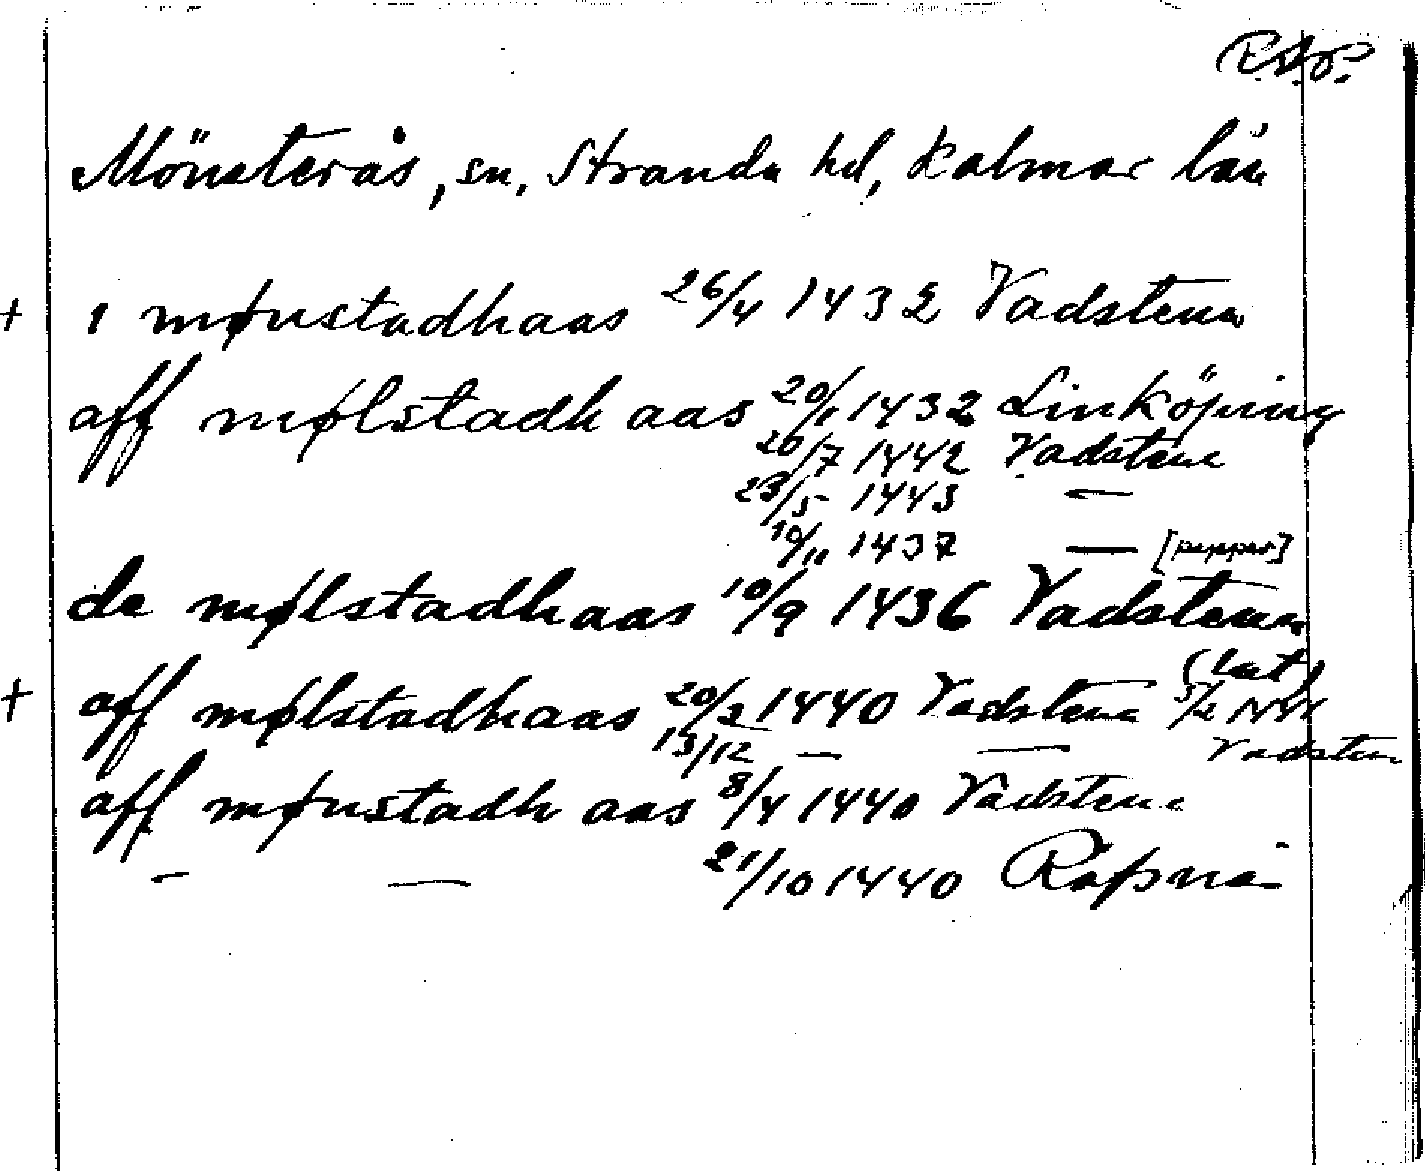 R.A.P.
Mönsterås, sn, Stranda hd, Kalmar län
+ i mønstadhaas 26/4 1432 Vadstena
aff mølstadh aas 20/1 1432 Linköping
20/7 1442 Vadstena
23/5 1443 —
10/11 1437 — [papper]
de mølstadhaas 10/9 1436 Vadstena
(lat)
+ aff mølstadhaas 20/3 1440 Vadstena 5/2 1441
13/12 — — Vadsten
aff mønstadh aas 8/4 1440 Vadstena
— — 21/10 1440